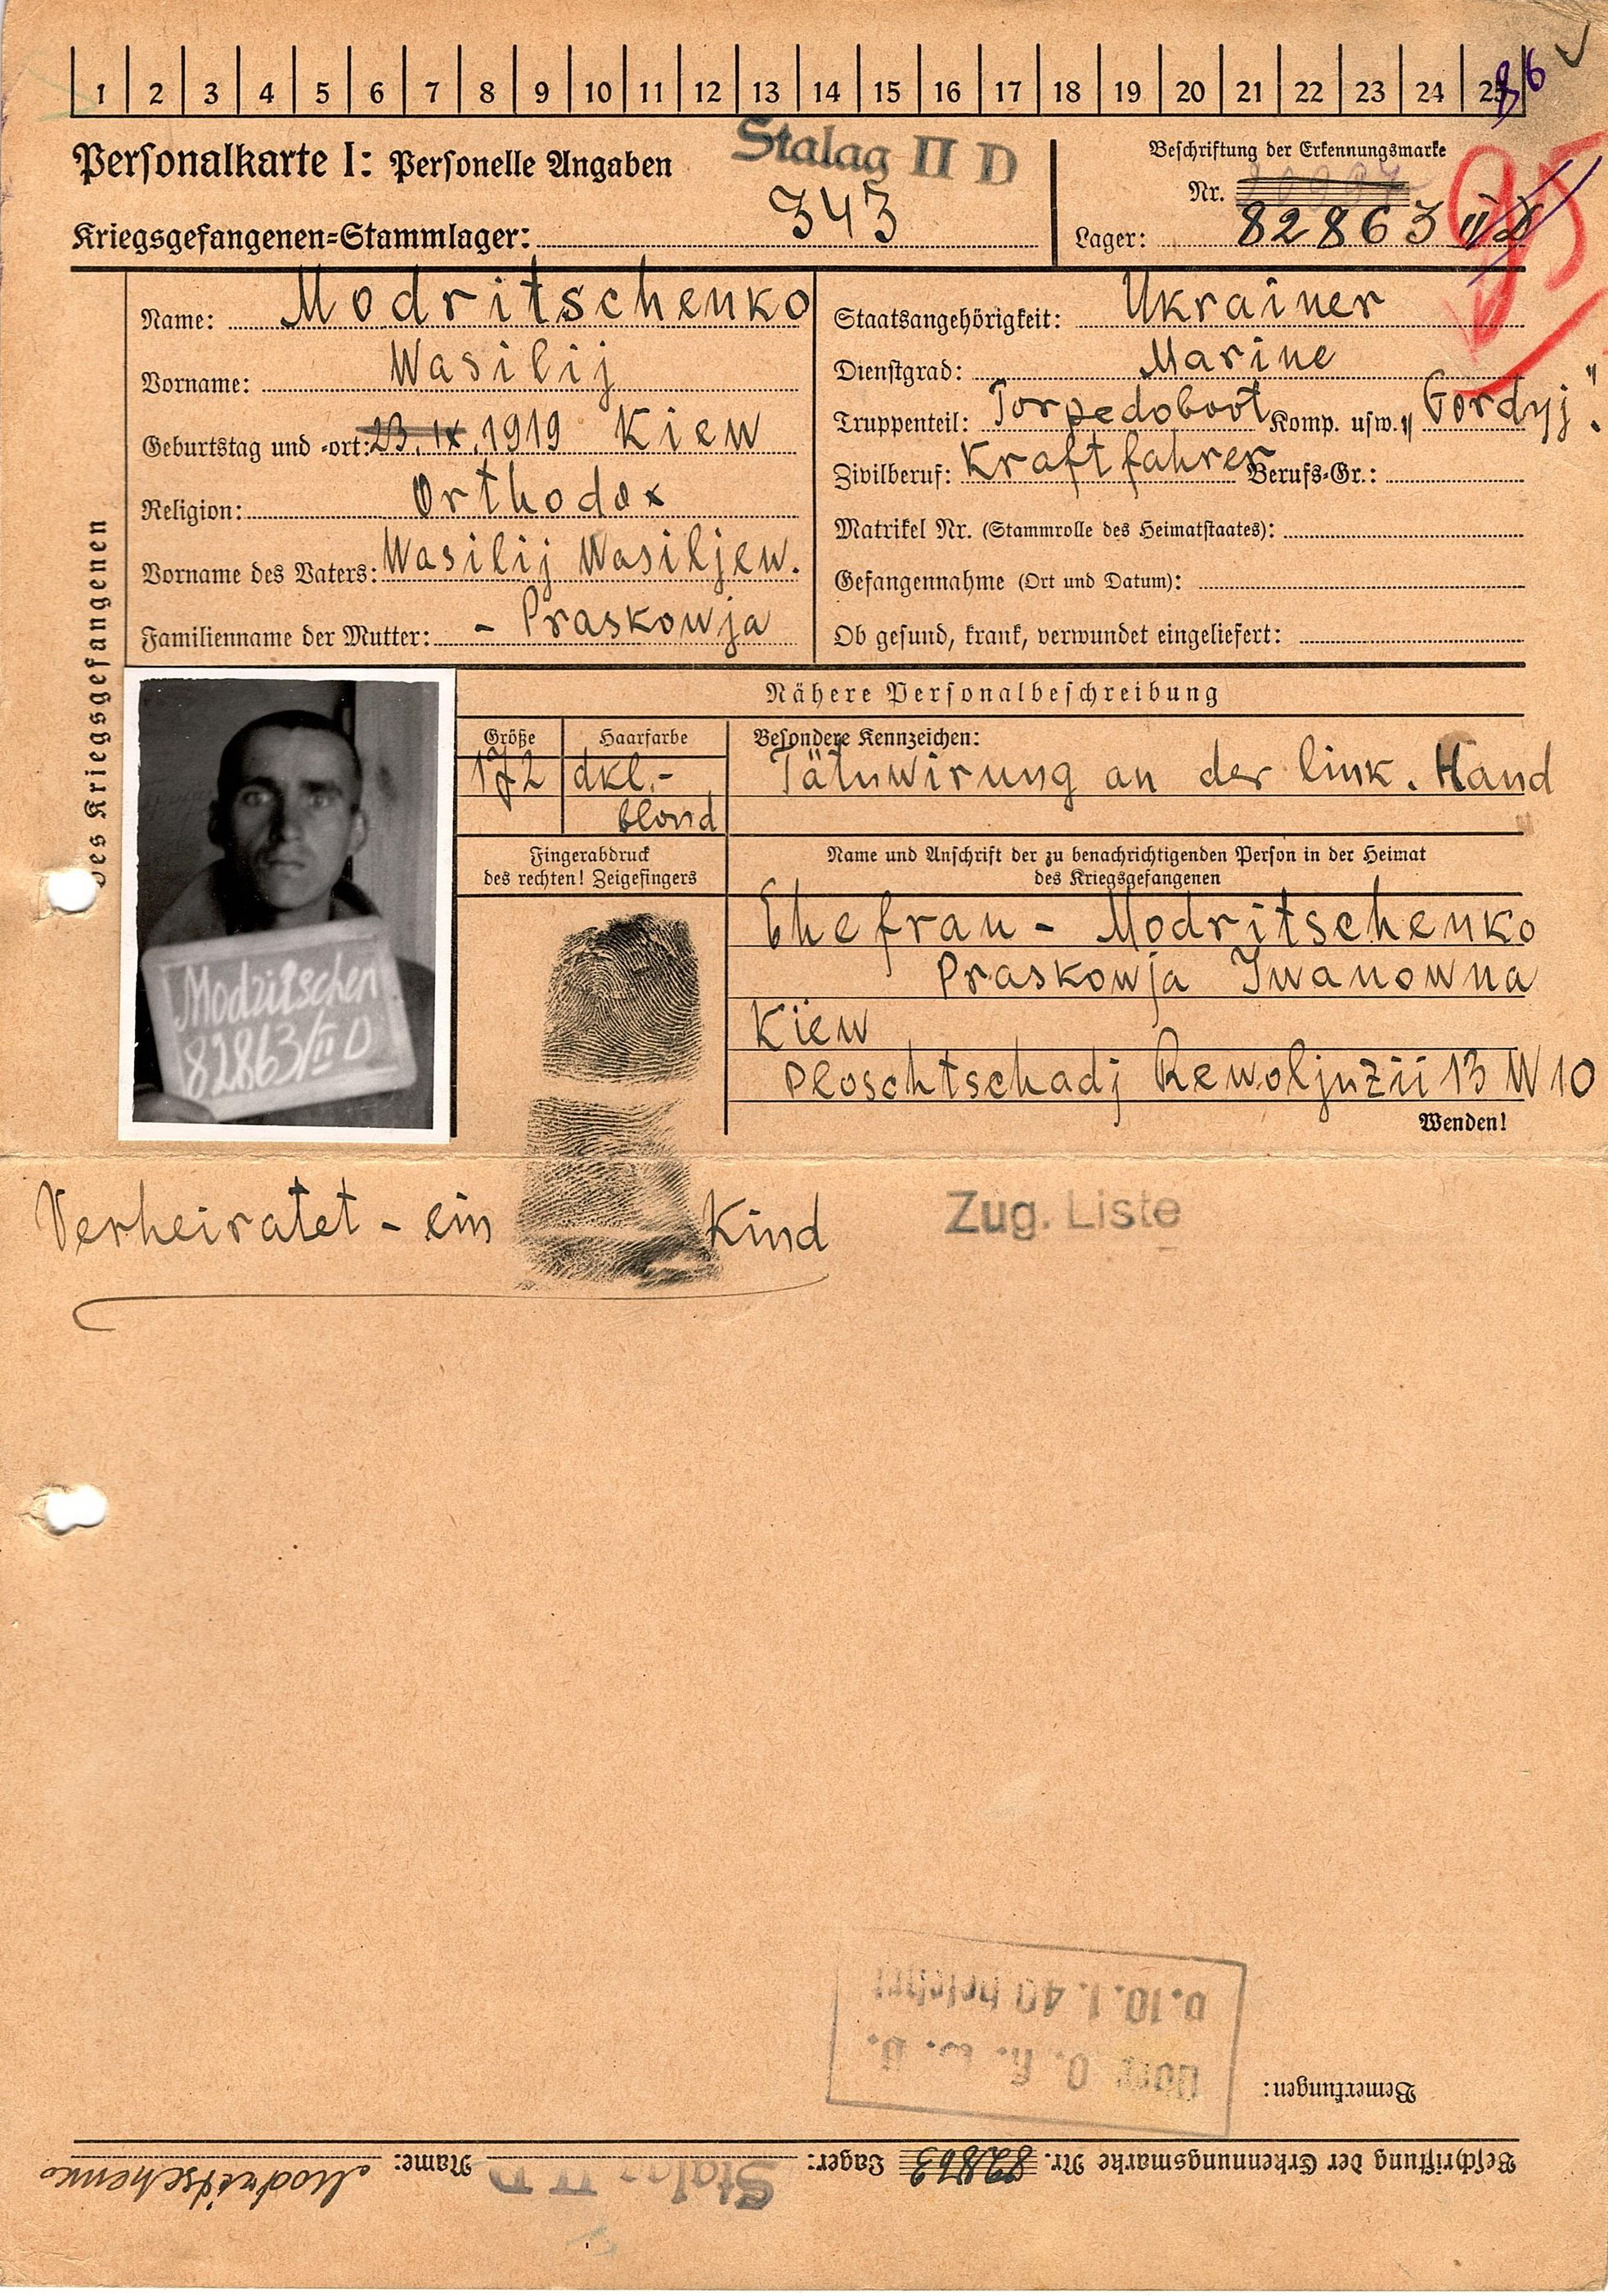 1 2 3 4 5 6 7 8 9 10 11 12 13 14 15 16 17 18 19 20 21 22 23 24 25
Personalkarte I: Personelle Angaben
Stalag II D
Beschriftung der Erkennungsmarke
Nr.
343
Kriegsgefangenen-Stammlager:
Lager: 82863 II D
95
des Kriegsgefangenen
Name: Modritschenko
Vorname: Wasilij
Geburtstag und -ort: 23. IX. 1919 Kiew
Religion: Orthodox
Vorname des Vaters: Wasilij Wasiljew.
Familienname der Mutter: - Praskowja
Staatsangehörigkeit: Ukrainer
Dienstgrad: Marine
Truppenteil: Torpedoboot Komp. usw. „Gordyj".
Zivilberuf: Kraftfahrer Berufs-Gr.:
Matrikel Nr. (Stammrolle des Heimatstaates):
Gefangennahme (Ort und Datum):
Ob gesund, krank, verwundet eingeliefert:
Nähere Personalbeschreibung
Größe Haarfarbe Besondere Kennzeichen:
172 dkl.- Tätuwirung an der link. Hand
blond
Fingerabdruck
des rechten! Zeigefingers
Name und Anschrift der zu benachrichtigenden Person in der Heimat
des Kriegsgefangenen
Ehefrau - Modritschenko
Praskowja Iwanowna
Kiew
Ploschtschadj Rewoljuzii 13 W 10
Wenden!
Modritschen
82863/II D
Verheiratet - ein Kind
Zug. Liste
Bemerkungen:
Beschriftung der Erkennungsmarke Nr. 82863 Lager: Stalag II D Name: Modritschenko